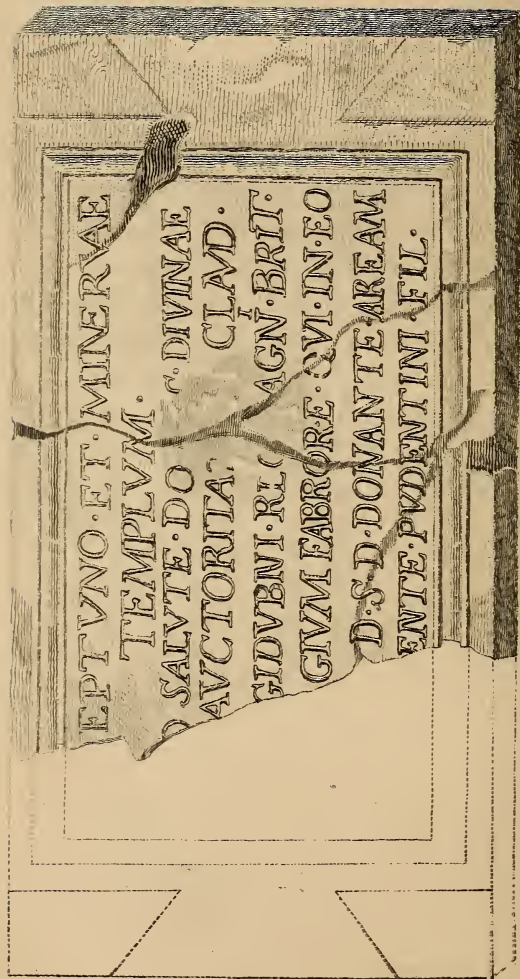 EPTVNO·ET·MINERVAE
TEMPLVM·
SALVTE·DO C·DIVINAE
AVCTORITAT CLAVD·
GIDVBNI·R AGNI·BRIT·
GIVM FABRORE·QVI·IN·EO
D·S·D·DONANTE·AREAM
ENTE·PVDENTINI·FIL·